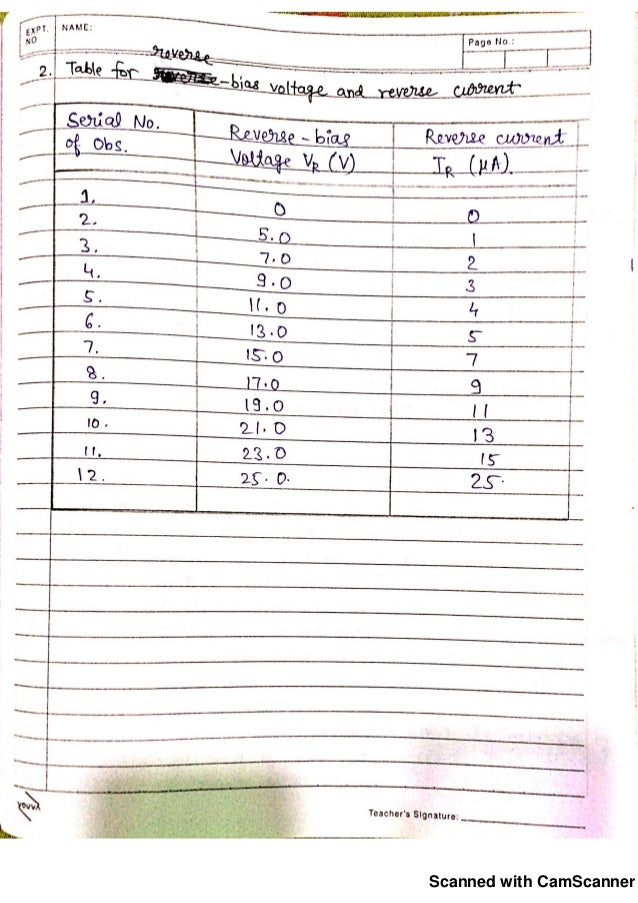 EXPT. NO
NAME:
Page No.:
reverse
2. Table for -bias voltage and reverse current
Serial No. of Obs.
Reverse-bias Voltage VR (V)
Reverse current IR (μA).
1. 0 0
2. 5.0 1
3. 7.0 2
4. 9.0 3
5. 11.0 4
6. 13.0 5
7. 15.0 7
8. 17.0 9
9. 19.0 11
10. 21.0 13
11. 23.0 15
12. 25.0. 25.
Teacher's Signature:
Scanned with CamScanner